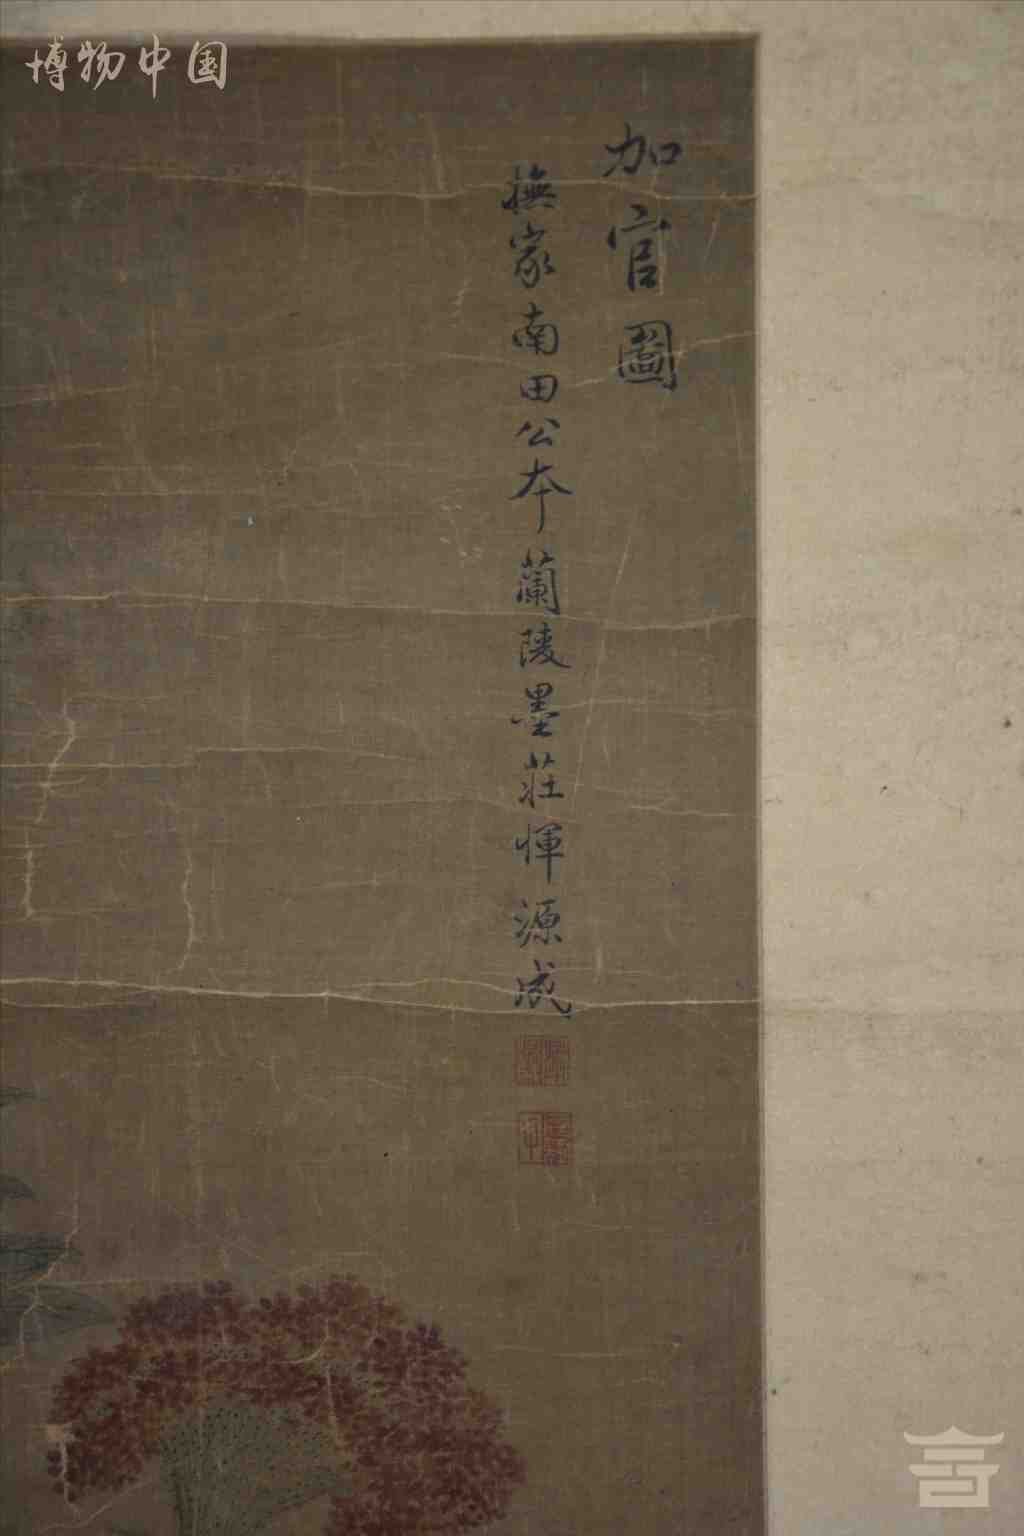 博物中国
加官圖
撫家南田公本蘭陵墨莊惲源成